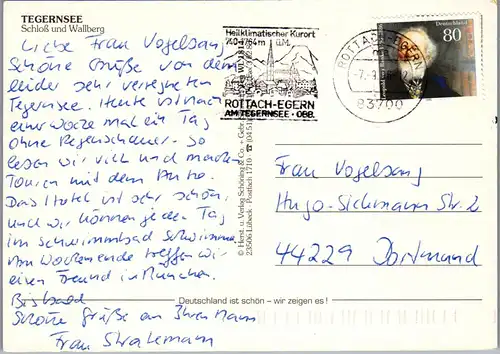 TEGERNSEE
Schloß und Wallberg
Liebe Frau Vogelsang,
Schöne Grüße von dem
leider sehr verregneten
Tegernsee. Heute ist nach
einer Woche mal ein Tag
ohne Regenschauer. So
lesen wir viel und machen
Touren mit dem Auto.
Das Hotel ist sehr schön,
und wir können jeden Tag
im Schwimmbad schwimmen.
Am Wochenende treffen wir
einen Freund in München.
Bis bald
Schöne Grüße an Ihren Mann
Frau Stratemann
Heilklimatischer Kurort
740-1764m ü.M.
ROTTACH-EGERN
AM TEGERNSEE · OBB.
ROTTACH-EGERN
83700
Deutschland
80
© Herst. u. Verlag Schöning & Co. + Gebr.
23506 Lübeck · Postfach 1710
Frau Vogelsang
Hugo-Sickmann Str. 2
44229 Dortmund
Deutschland ist schön – wir zeigen es!